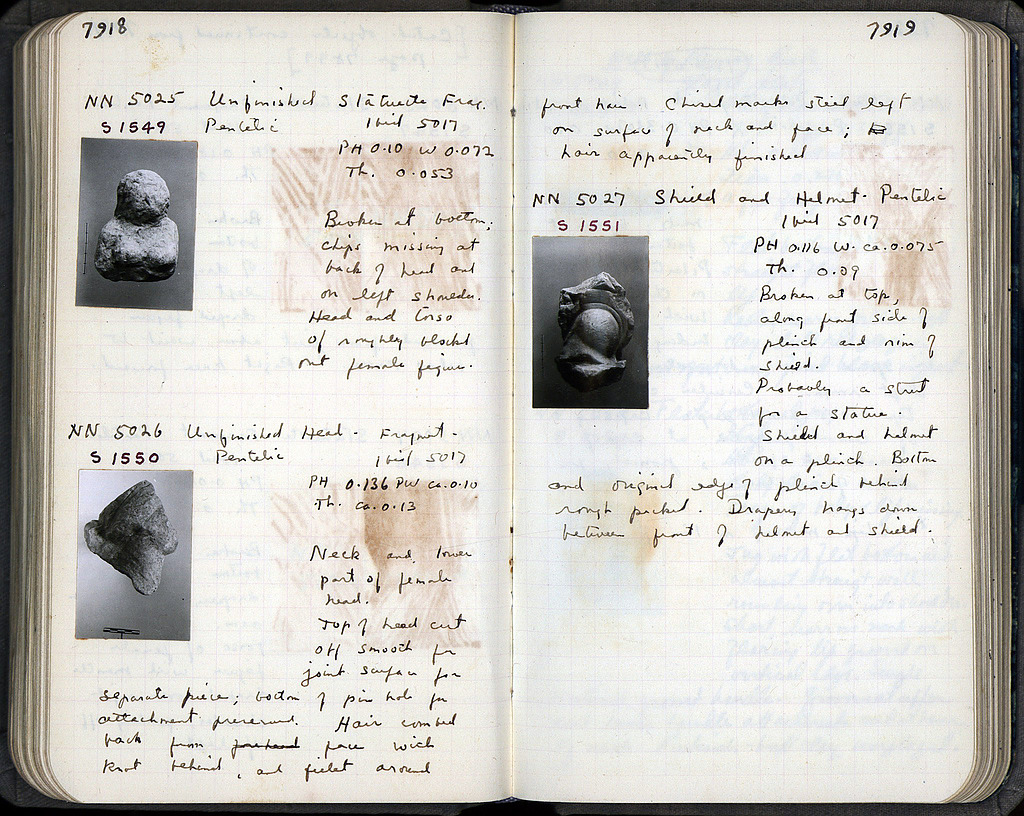 7918
NN 5025 Unfinished Statuette Frag.
S 1549 Pentelic 1bid 5017
PH 0.10 W 0.072
Th. 0.053
Broken at bottom;
chips missing at
back of head and
on left shoulder.
Head and torso
of roughly blocked
out female figure.
NN 5026 Unfinished Head - Fragmt -
S 1550 Pentelic 1bid 5017
PH 0.136 PW ca. 0.10
Th. ca. 0.13
Neck and lower
part of female
head.
Top of head cut
off smooth for
joint surface for
separate piece; bottom of pin hole for
attachment preserved. Hair combed
back from forehead face with
knot behind, and fillet around
7919
front hair. Chisel marks still left
on surface of neck and face;
hair apparently finished
NN 5027 Shield and Helmet - Pentelic
S 1551 1bid 5017
PH 0.116 W. ca. 0.075
Th. 0.09
Broken at top,
along front side of
plinth and rim of
shield.
Probably a strut
for a statue.
Shield and helmet
on a plinth. Bottom
and original edge of plinth behind
rough picked. Drapery hangs down
between front of helmet and shield.